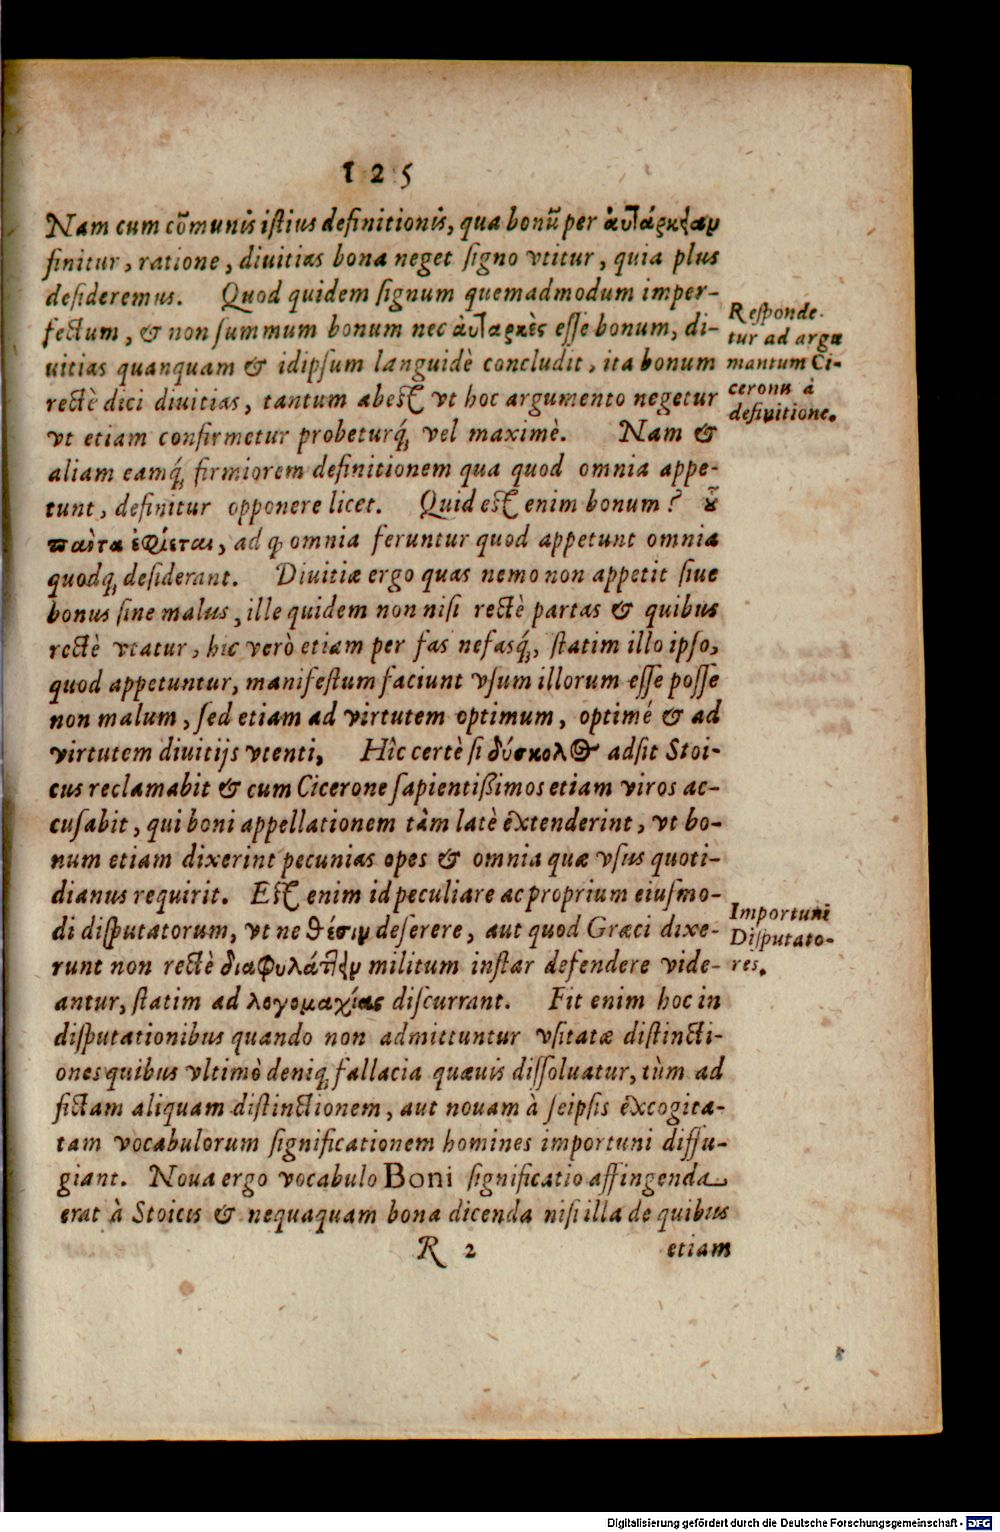 125
Nam cum cõmunis istius definitionis, qua bonũ per ἀυτάρκειαν
finitur, ratione, diuitias bona neget signo vtitur, quia plus
desideremus. Quod quidem signum quemadmodum imper-
fectum, & non summum bonum nec ἀυταρκὲς esse bonum, di-
uitias quanquam & idipsum languidè concludit, ita bonum
rectè dici diuitias, tantum abest vt hoc argumento negetur
vt etiam confirmetur probeturq́; vel maximè. Nam &
aliam eamq́; firmiorem definitionem qua quod omnia appe-
tunt, definitur opponere licet. Quid est enim bonum? οὗ
πάντα ἐφίεται, ad qđ omnia feruntur quod appetunt omnia
quodq; desiderant. Diuitiæ ergo quas nemo non appetit siue
bonus siue malus, ille quidem non nisi rectè partas & quibus
rectè vtatur, hic verò etiam per fas nefasq́;, statim illo ipso,
quod appetuntur, manifestum faciunt vsum illorum esse posse
non malum, sed etiam ad virtutem optimum, optimé & ad
virtutem diuitijs vtenti, Hîc certè si δύσκολος adsit Stoi-
cus reclamabit & cum Cicerone sapientißimos etiam viros ac-
cusabit, qui boni appellationem tàm latè extenderint, vt bo-
num etiam dixerint pecunias opes & omnia quæ vsus quoti-
dianus requirit. Est enim id peculiare ac proprium eiusmo-
di disputatorum, vt ne θέσιν deserere, aut quod Græci dixe-
runt non rectè διαφυλάττειν militum instar defendere vide-
antur, statim ad λογομαχίας discurrant. Fit enim hoc in
disputationibus quando non admittuntur vsitatæ distincti-
ones quibus vltimò deniq; fallacia quæuis dissoluatur, tùm ad
fictam aliquam distinctionem, aut nouam à seipsis excogita-
tam vocabulorum significationem homines importuni diffu-
giant. Noua ergo vocabulo Boni significatio affingenda
erat à Stoicis & nequaquam bona dicenda nisi illa de quibus
R 2 etiam
Responde-
tur ad argu
mantum Ci-
ceronis à
definitione.
Importuni
Disputato-
res.
Digitalisierung gefördert durch die Deutsche Forschungsgemeinschaft - DFG